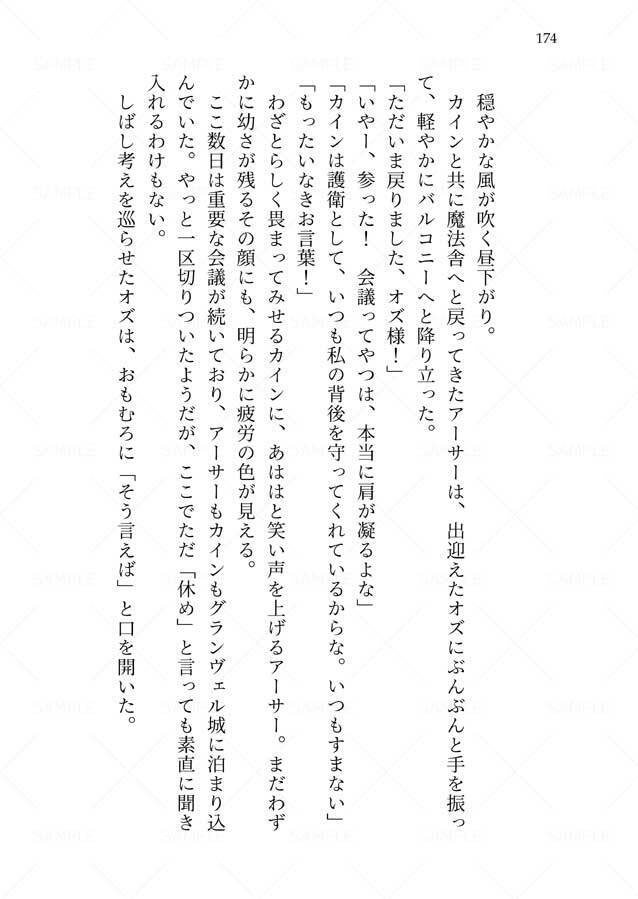 174
穏やかな風が吹く昼下がり。
カインと共に魔法舎へと戻ってきたアーサーは、出迎えたオズにぶんぶんと手を振っ
て、軽やかにバルコニーへと降り立った。
「ただいま戻りました、オズ様！」
「いやー、参った！　会議ってやつは、本当に肩が凝るよな」
「カインは護衛として、いつも私の背後を守ってくれているからな。いつもすまない」
「もったいなきお言葉！」
わざとらしく畏まってみせるカインに、あははと笑い声を上げるアーサー。まだわず
かに幼さが残るその顔にも、明らかに疲労の色が見える。
ここ数日は重要な会議が続いており、アーサーもカインもグランヴェル城に泊まり込
んでいた。やっと一区切りついたようだが、ここでただ「休め」と言っても素直に聞き
入れるわけもない。
しばし考えを巡らせたオズは、おもむろに「そう言えば」と口を開いた。
SAMPLE SAMPLE SAMPLE SAMPLE SAMPLE
SAMPLE SAMPLE SAMPLE SAMPLE SAMPLE
SAMPLE SAMPLE SAMPLE SAMPLE SAMPLE
SAMPLE SAMPLE SAMPLE SAMPLE SAMPLE
SAMPLE SAMPLE SAMPLE SAMPLE SAMPLE
SAMPLE SAMPLE SAMPLE SAMPLE SAMPLE
SAMPLE SAMPLE SAMPLE SAMPLE SAMPLE